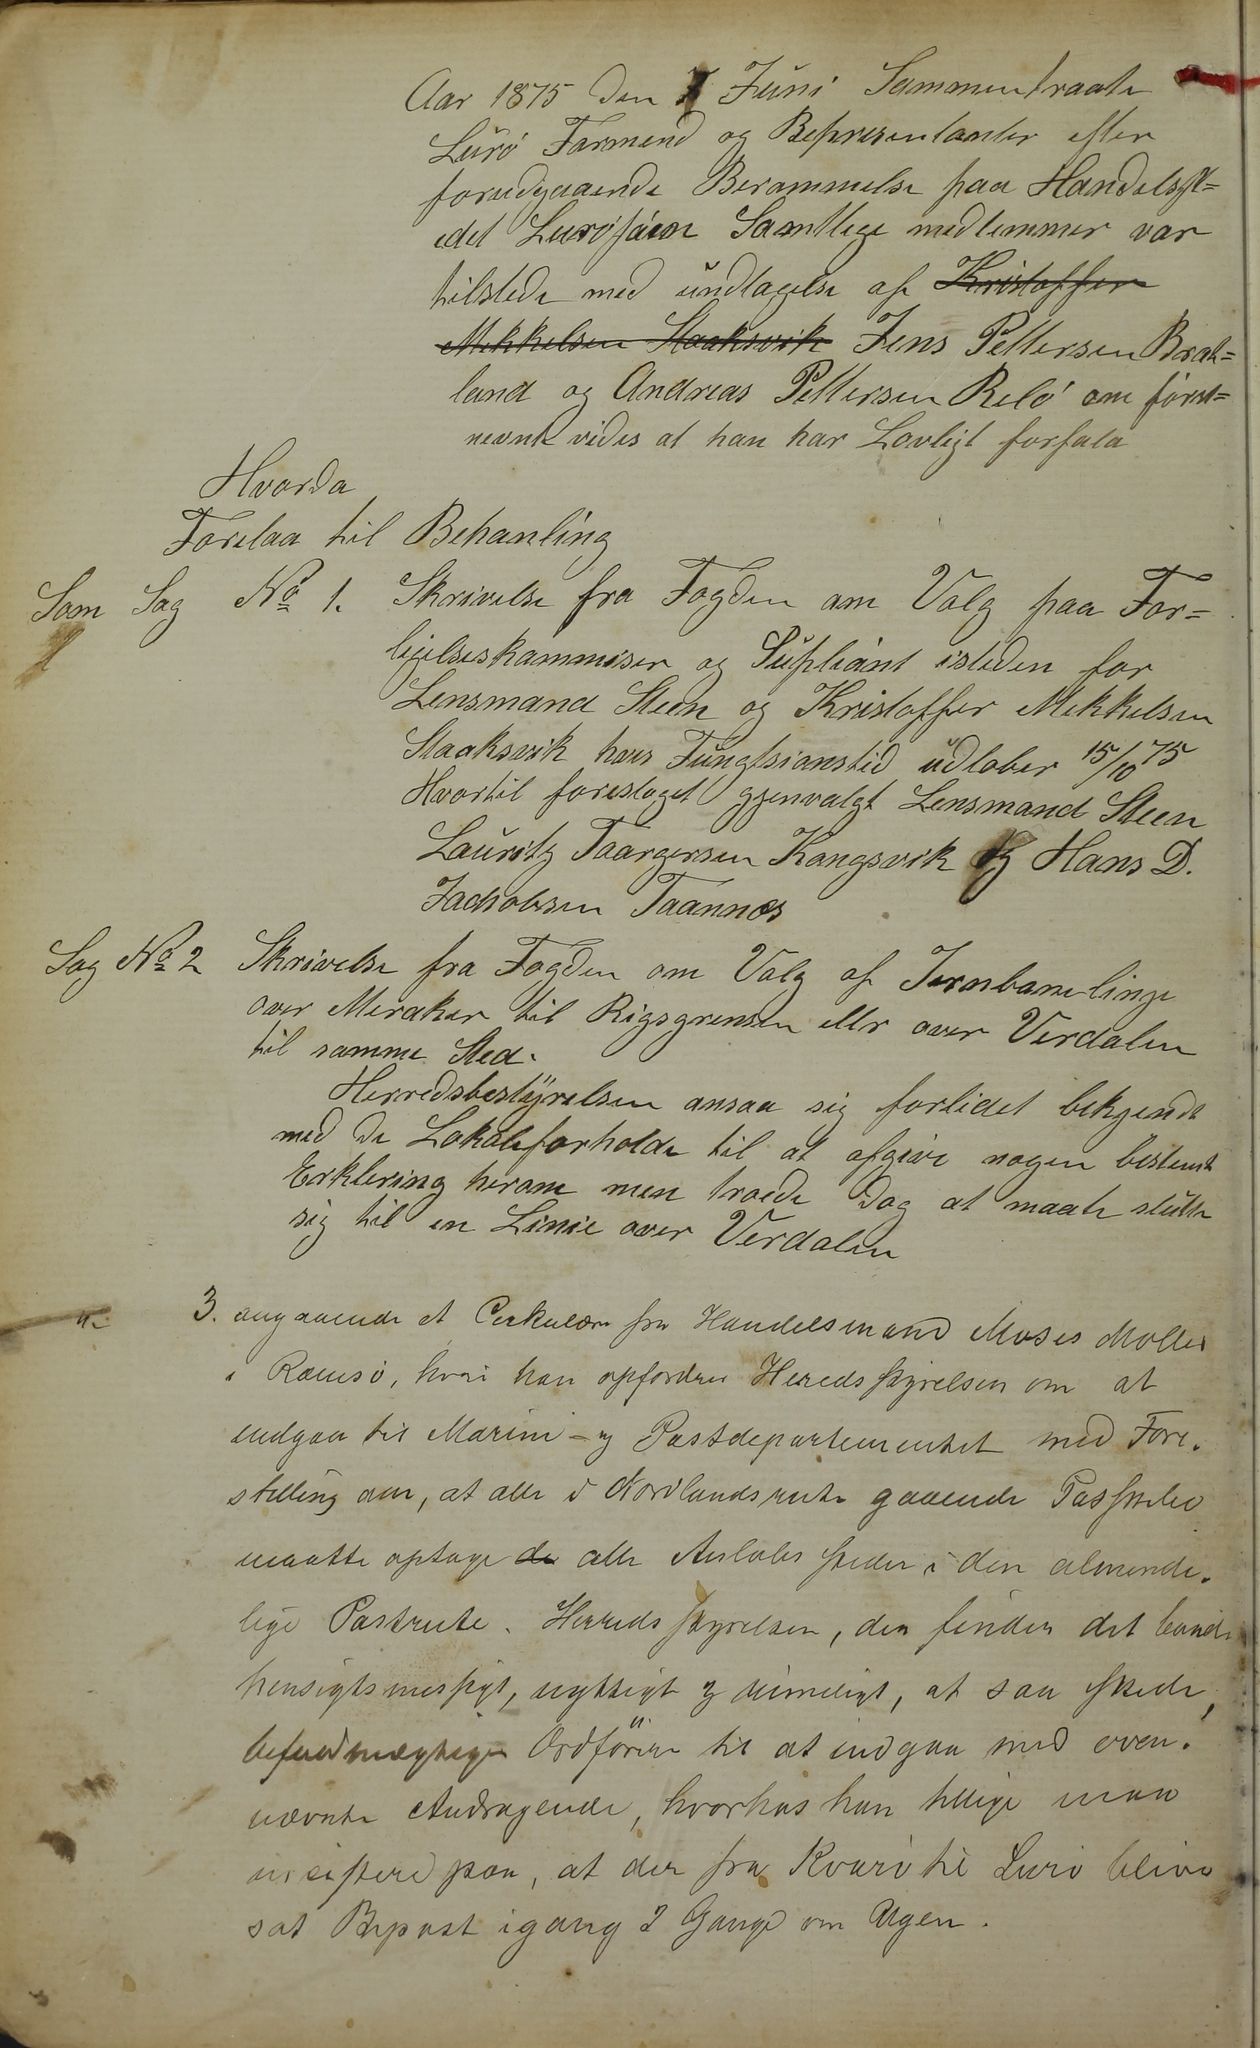 Aar 1875 den 7 Juni Sammentraate
Lurö Formend og Represendanter efter
foredgaaende Berammelse paa Handelsst=
edet Lurösjöen Samtlige medlemmer var
tilstede med undtagelse af Kristoffer
Mikkelsen Staaksvik Jens Pettersen Brat=
land og Andreas Pettersen Relö om först=
nevnte vides at han har Lovligt forfald
Hvorda
Forelaa til Behanling
Som Sag No 1. Skrivelse fra Fogden om Valg paa For=
ligelseskommiser og Supliant isteden for
Lensmand Steen og Kristoffer Mikkelsen
Staaksvik hvis Fungtsionstid udlober 15/10 75
Hvortil foreslaget gjenvalgt Lensmand Steen
Lauritz Taargersen Kongsvik og Hans D.
Jachobsen Taannes
Sag No 2 Skrivelse fra Fogden om Valg af Jernbanelinje
over Meraker til Rigsgrensen eller over Verdalen
til samme Sted.
Herredsbestyrelsen ansaa sig forlidet bekjendt
med de Lokaleforholde til at afgive nogen bestemt
Erklering herom men troede dog at maate slutte
sig til en Linie over Verdalen
"- 3. angaaende et Cirkulære fra Handelsmand Moses Moller
i Ramsö, hvori han opfordrer Heredsstyrelsen om at
indgaa til Marine- og Postdepartementet med Fore.
stilling om, at alle i Nordlandsrute gaaende Postskibe
maatte optage de alle Anlöbssteder i den almende.
lige Postrute. Herredsstyrelsen, der finder det baade
hensigtsmessigt, nyttigt og rimeligt, at saa skede,
befuldmægtiger Ordförer til at indgaa med oven.
nævnte Andragende, hvorhos han tillige maa
insistere paa, at der fra Kvarö til Lurö bliver
sat Bipost igang 2 Gange om Ugen.